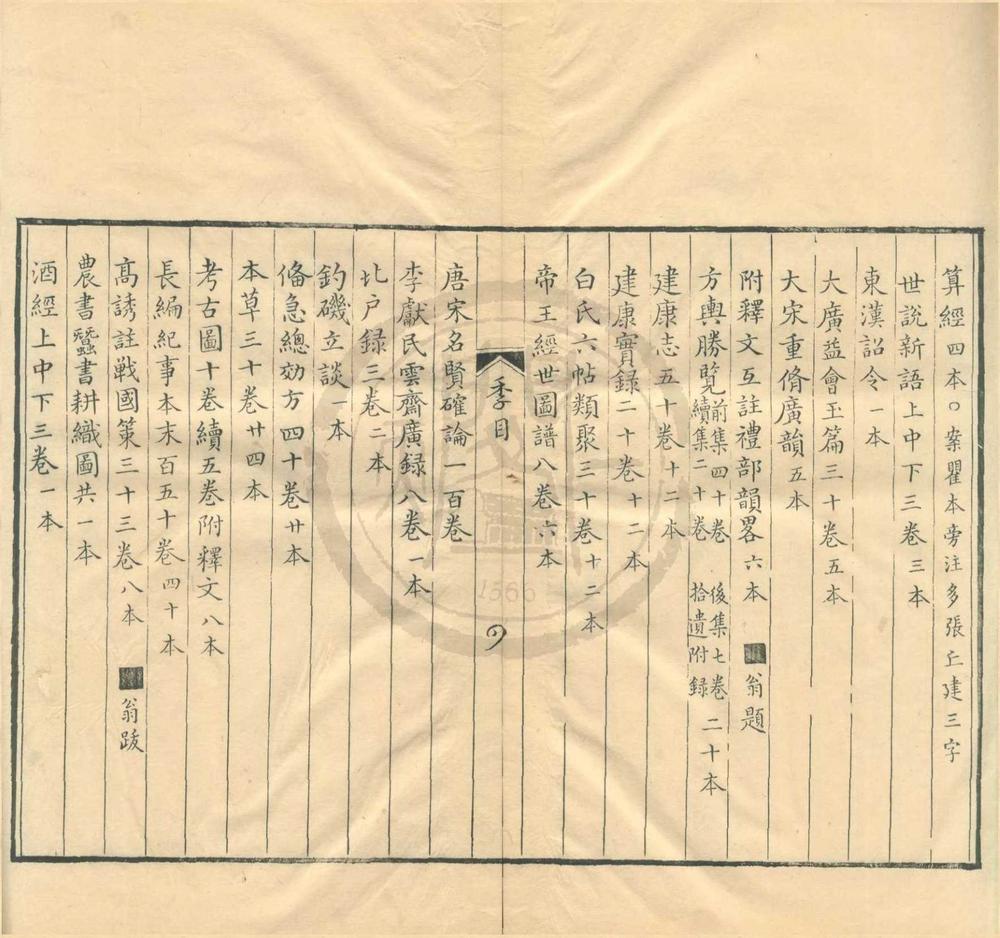 算經四本○案瞿本旁注多張丘建三字
世說新語上中下三卷三本
東漢詔令一本
大廣益會玉篇三十卷五本
大宋重脩廣韻五本
附釋文互註禮部韻畧六本 翁題
方輿勝覽前集四十卷 後集七卷 續集二十卷 拾遺附録 二十本
建康志五十卷十二本
建康實録二十卷十二本
白氏六帖類聚三十卷十二本
帝王經世圖譜八卷六本
季目
唐宋名賢確論一百卷
李獻民雲齋廣録八卷一本
北户録三卷二本
釣磯立談一本
俻急總効方四十卷廿本
本草三十卷廿四本
考古圖十卷續五卷附釋文八本
長編紀事本末百五十卷四十本
高誘註戰國策三十三卷八本 翁跋
農書蠶書耕織圖共一本
酒經上中下三卷一本
1566